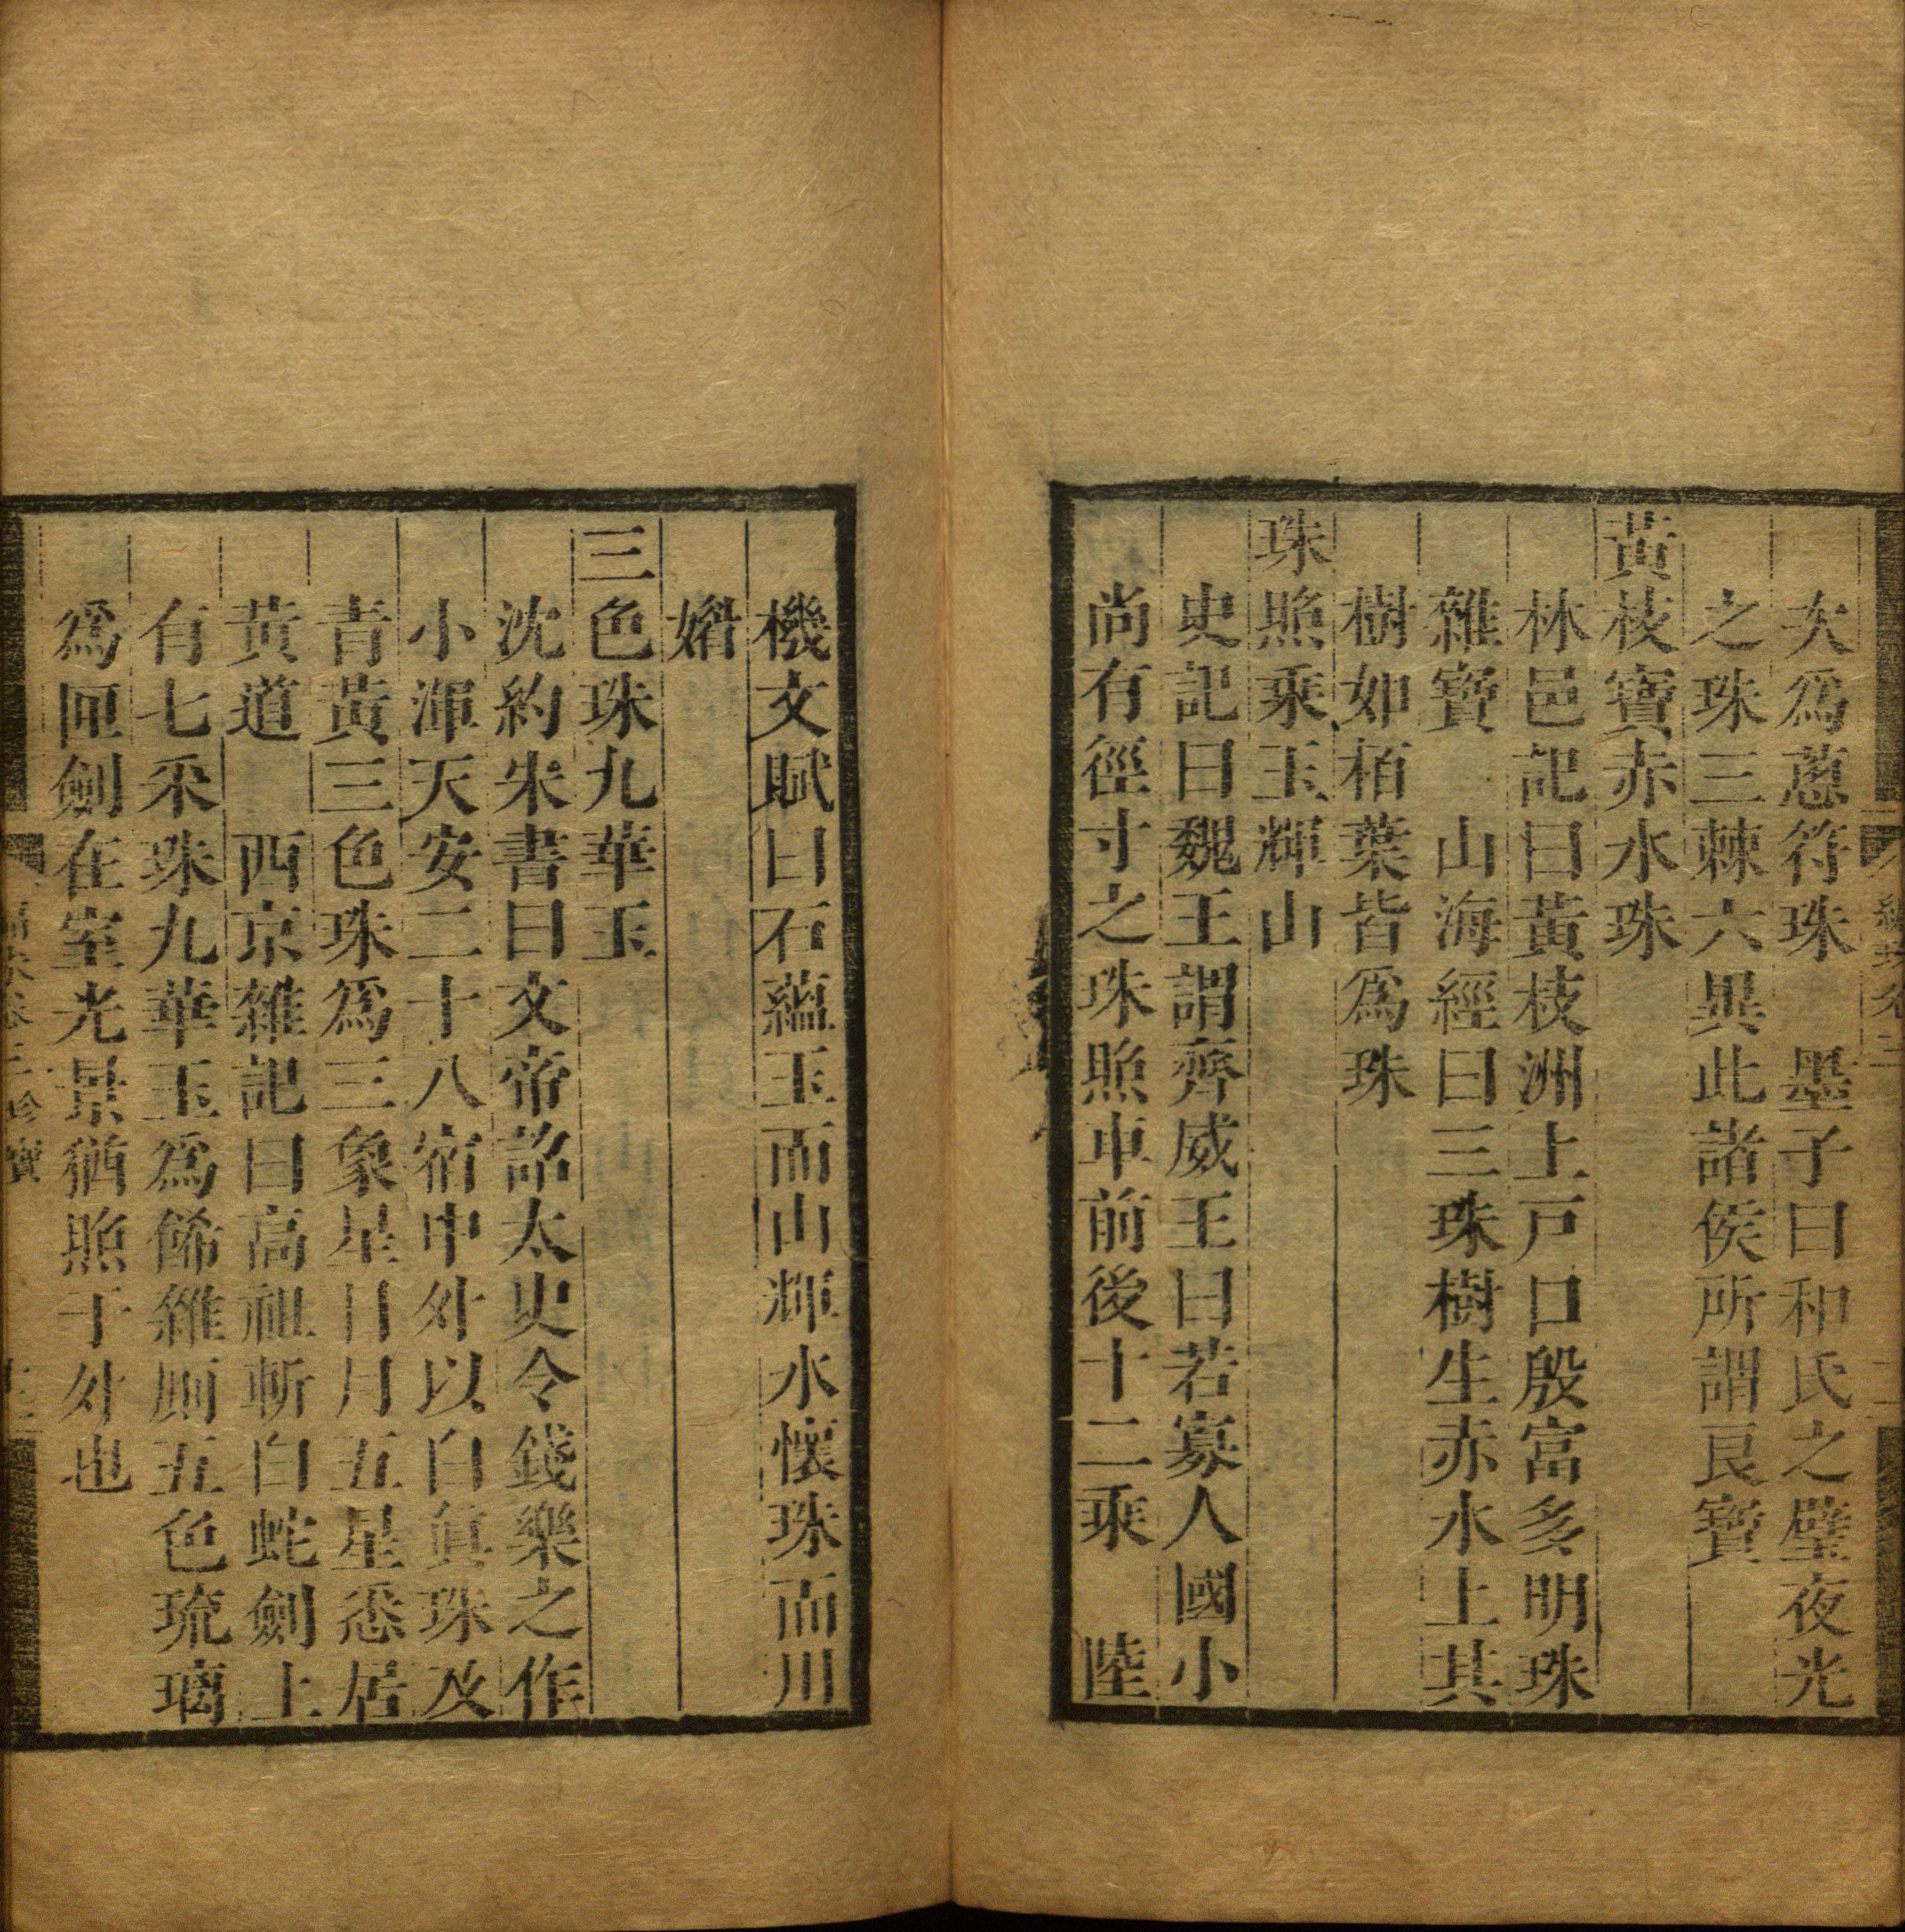 次為蒠符珠　墨子曰和氏之璧夜光
之珠三棘六異此諸侯所謂良寶
黃枝寶赤水珠
林邑記曰黃枝洲上戸口殷富多明珠
雜寶　山海經曰三珠樹生赤水上其
樹如栢葉皆為珠
珠照乘玉輝山
史記曰魏王謂齊威王曰若寡人國小
尚有徑寸之珠照車前後十二乘　陸
機文賦曰石蘊玉而山輝水懷珠而川
媚
三色珠九華玉
沈約宋書曰文帝詔太史令錢樂之作
小渾天安二十八宿中外以白真珠及
青黃三色珠為三象星日月五星悉居
黃道　西京雜記曰高祖斬白蛇劍上
有七采珠九華玉為飾雜厠五色琉璃
為匣劍在室光景猶照于外也